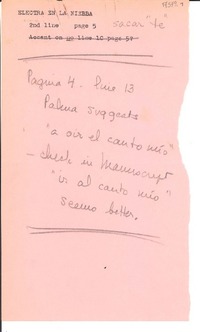 ELECTRA EN LA NIEBLA
2nd line page 5
sacar "te"
Accent on line 10 page 57
Pagina 4. line 13
Palma suggests
"a oir el canto mío"
— check in Manuscript
al canto mío"
seems better.